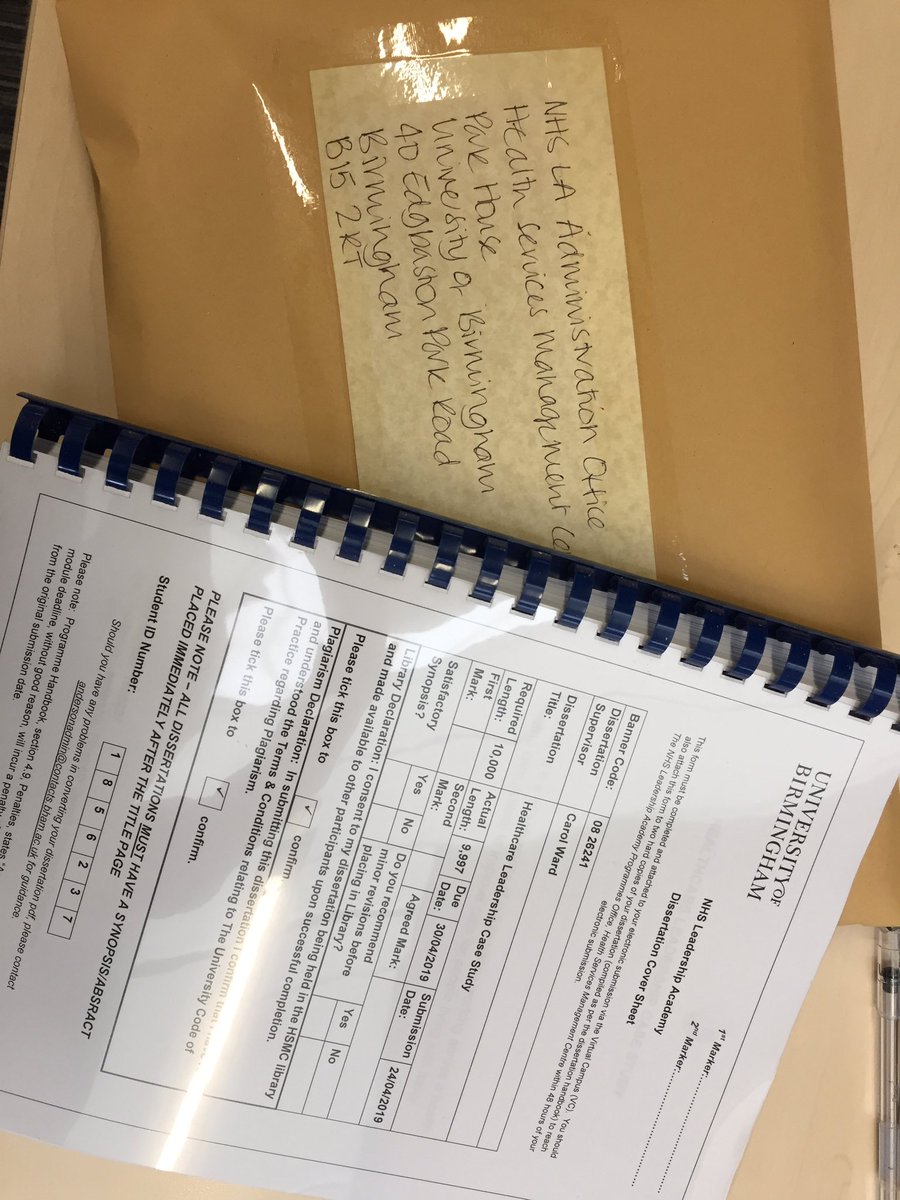 NHS LA Administration Office
Health services management Ce
Park House
University of Birmingham
40 Edgbaston Park Road
Birmingham
B15 2RT
UNIVERSITY OF
BIRMINGHAM
1st Marker:
2nd Marker:
NHS Leadership Academy
Dissertation Cover Sheet
This form must be completed and attached to your electronic submission via the Virtual Campus (VC). You should
also attach this form to two hard copies of your dissertation (compiled as per the dissertation handbook) to reach
The NHS Leadership Academy Programmes Office, Health Services Management Centre within 48 hours of your
electronic submission.
Banner Code: 08 26241
Dissertation Supervisor Carol Ward
Dissertation Title: Healthcare Leadership Case Study
Required Length: 10,000 Actual Length: 9,997 Due Date: 30/04/2019 Submission Date: 24/04/2019
First Mark: Second Mark: Agreed Mark:
Satisfactory Synopsis? Yes No Do you recommend minor revisions before placing in Library? Yes No
Library Declaration: I consent to my dissertation being held in the HSMC library
and made available to other participants upon successful completion.
Please tick this box to ✓ confirm
Plagiarism Declaration: In submitting this dissertation I confirm that I have
and understood the Terms & Conditions relating to The University Code of
Practice regarding Plagiarism.
Please tick this box to ✓ confirm.
PLEASE NOTE – ALL DISSERTATIONS MUST HAVE A SYNOPSIS/ABSTRACT
PLACED IMMEDIATELY AFTER THE TITLE PAGE
Student ID Number: 1 8 5 6 2 3 7
Should you have any problems in converting your dissertation pdf, please contact
andersonadmin@contacts.bham.ac.uk for guidance.
Please note: Programme Handbook, section 4.9, Penalties, states "A
module deadline, without good reason, will incur a penalty
from the original submission date.